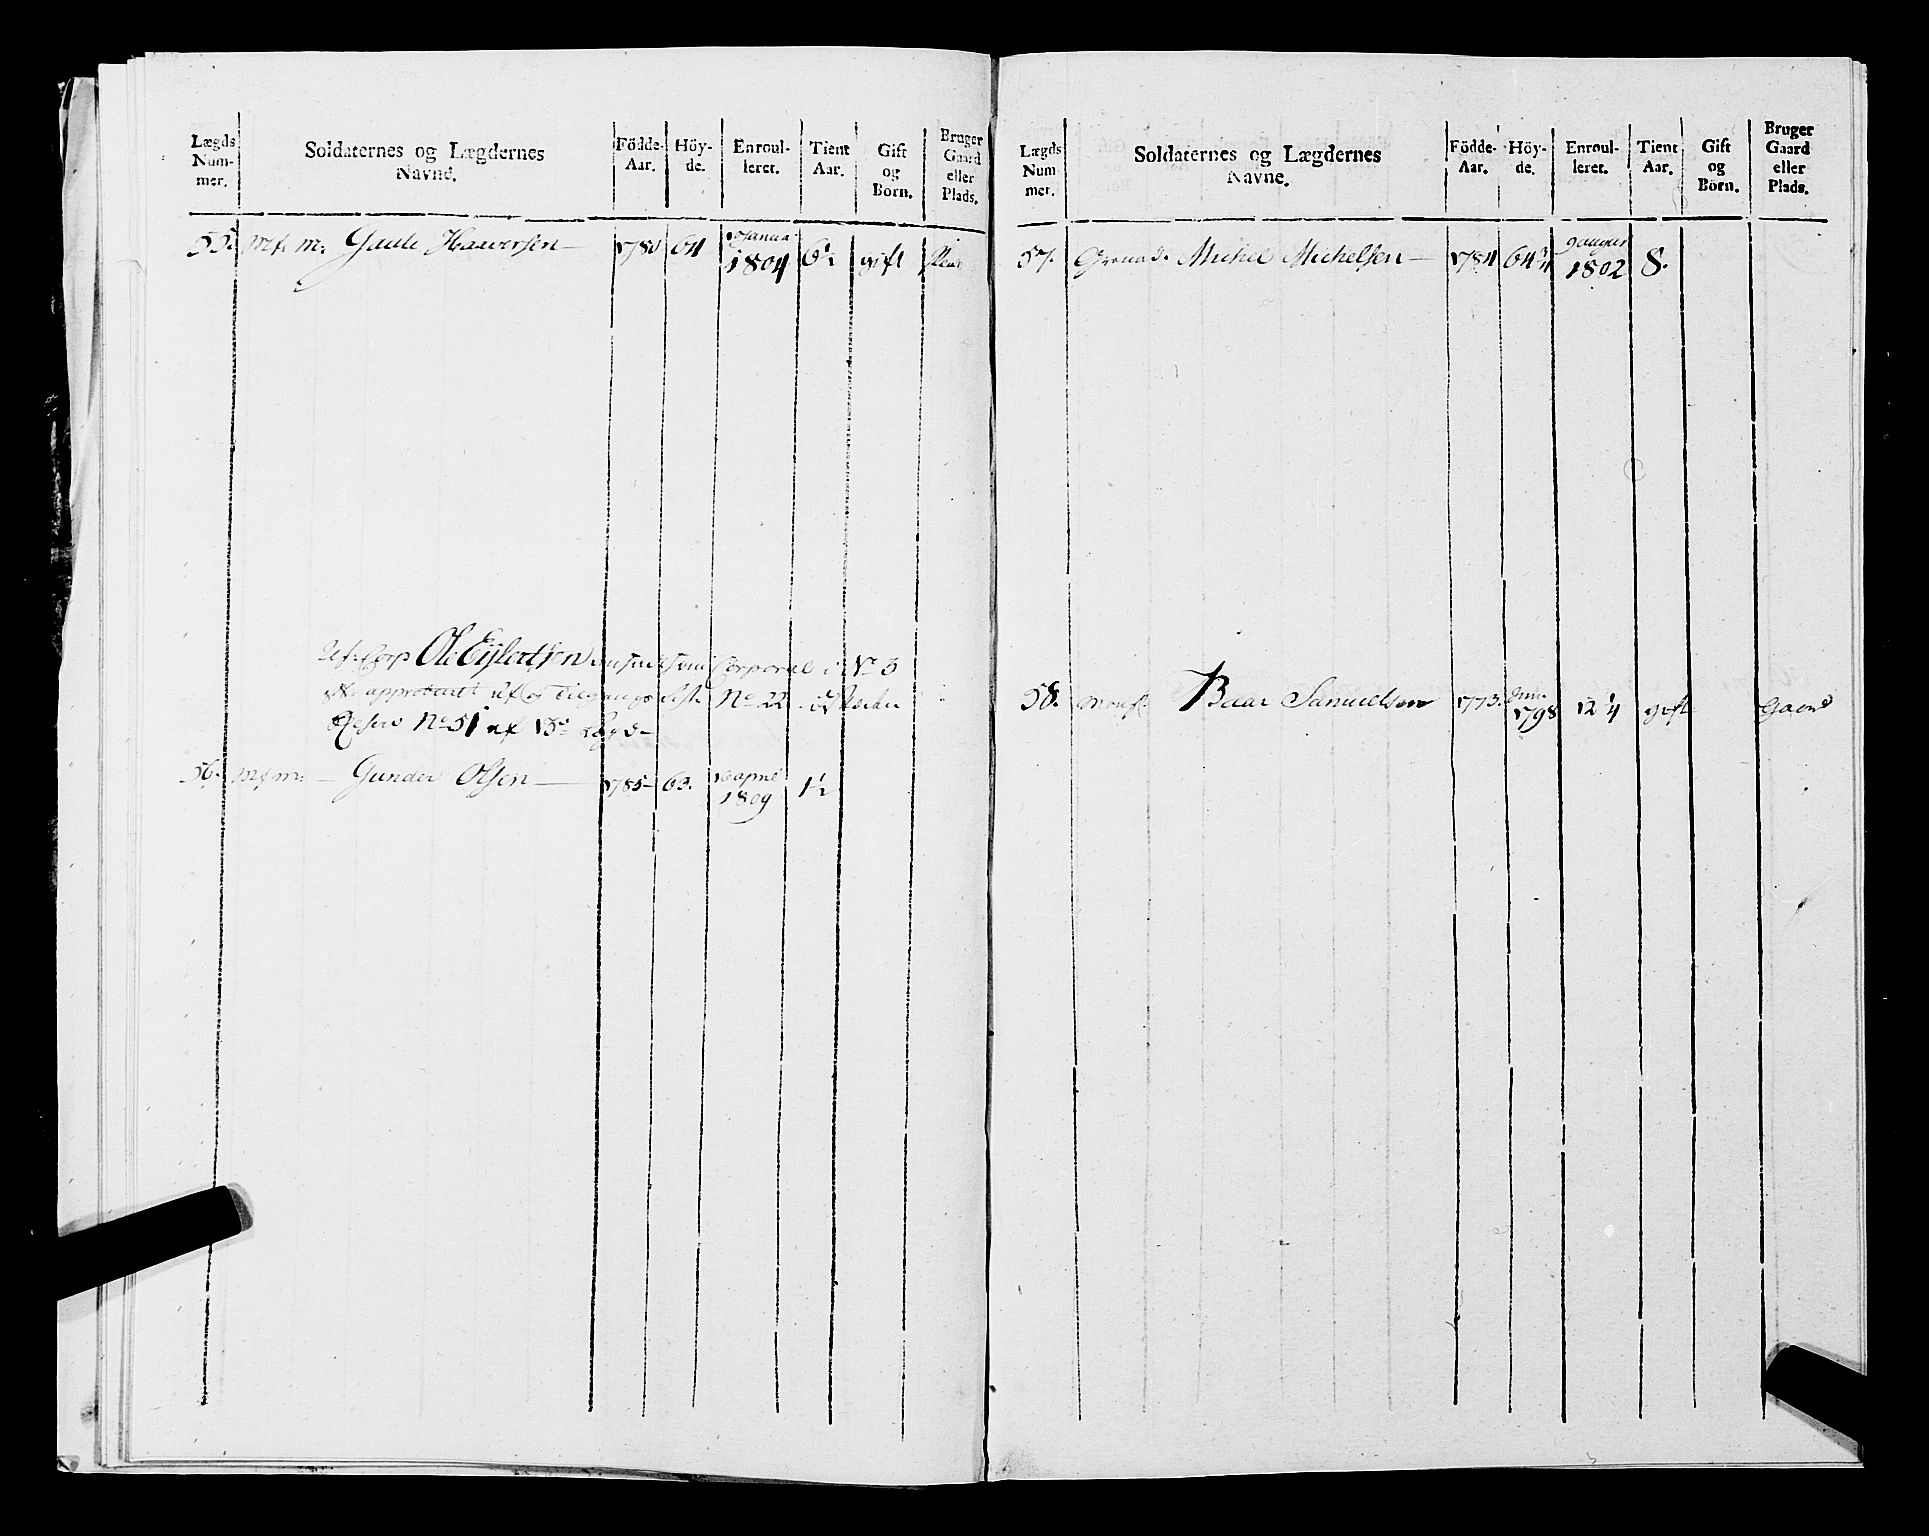 Lægds Num- mer.
Soldaternes og Lægdernes Navne.
Födde- Aar.
Höy- de.
Enroul- leret.
Tient Aar.
Gift og Börn.
Bruger Gaard eller Plads.
55. Mf. m: Gaule Haaversen — 1780 64 Januar 1804 6½ gift
Uf: Corp Ole Eilertsen Corporal i No 3
approberet af Liste No 22
Reserv No 51 af 13de Lægd —
56. Mf. m: — Gunder Olsen — 1785 — 63. april 1809 1½
Lægds Num mer.
Soldaternes og Lægdernes Navne.
Födde- Aar.
Höy- de.
Enroul- leret.
Tient Aar.
Gift og Börn.
Bruger Gaard eller Plads.
57. Grenad. Michel Michelsen — 1784 64¾ 1802 8.
58. Baar Samuelsen 1773. 1798 12¼ gift Gaard